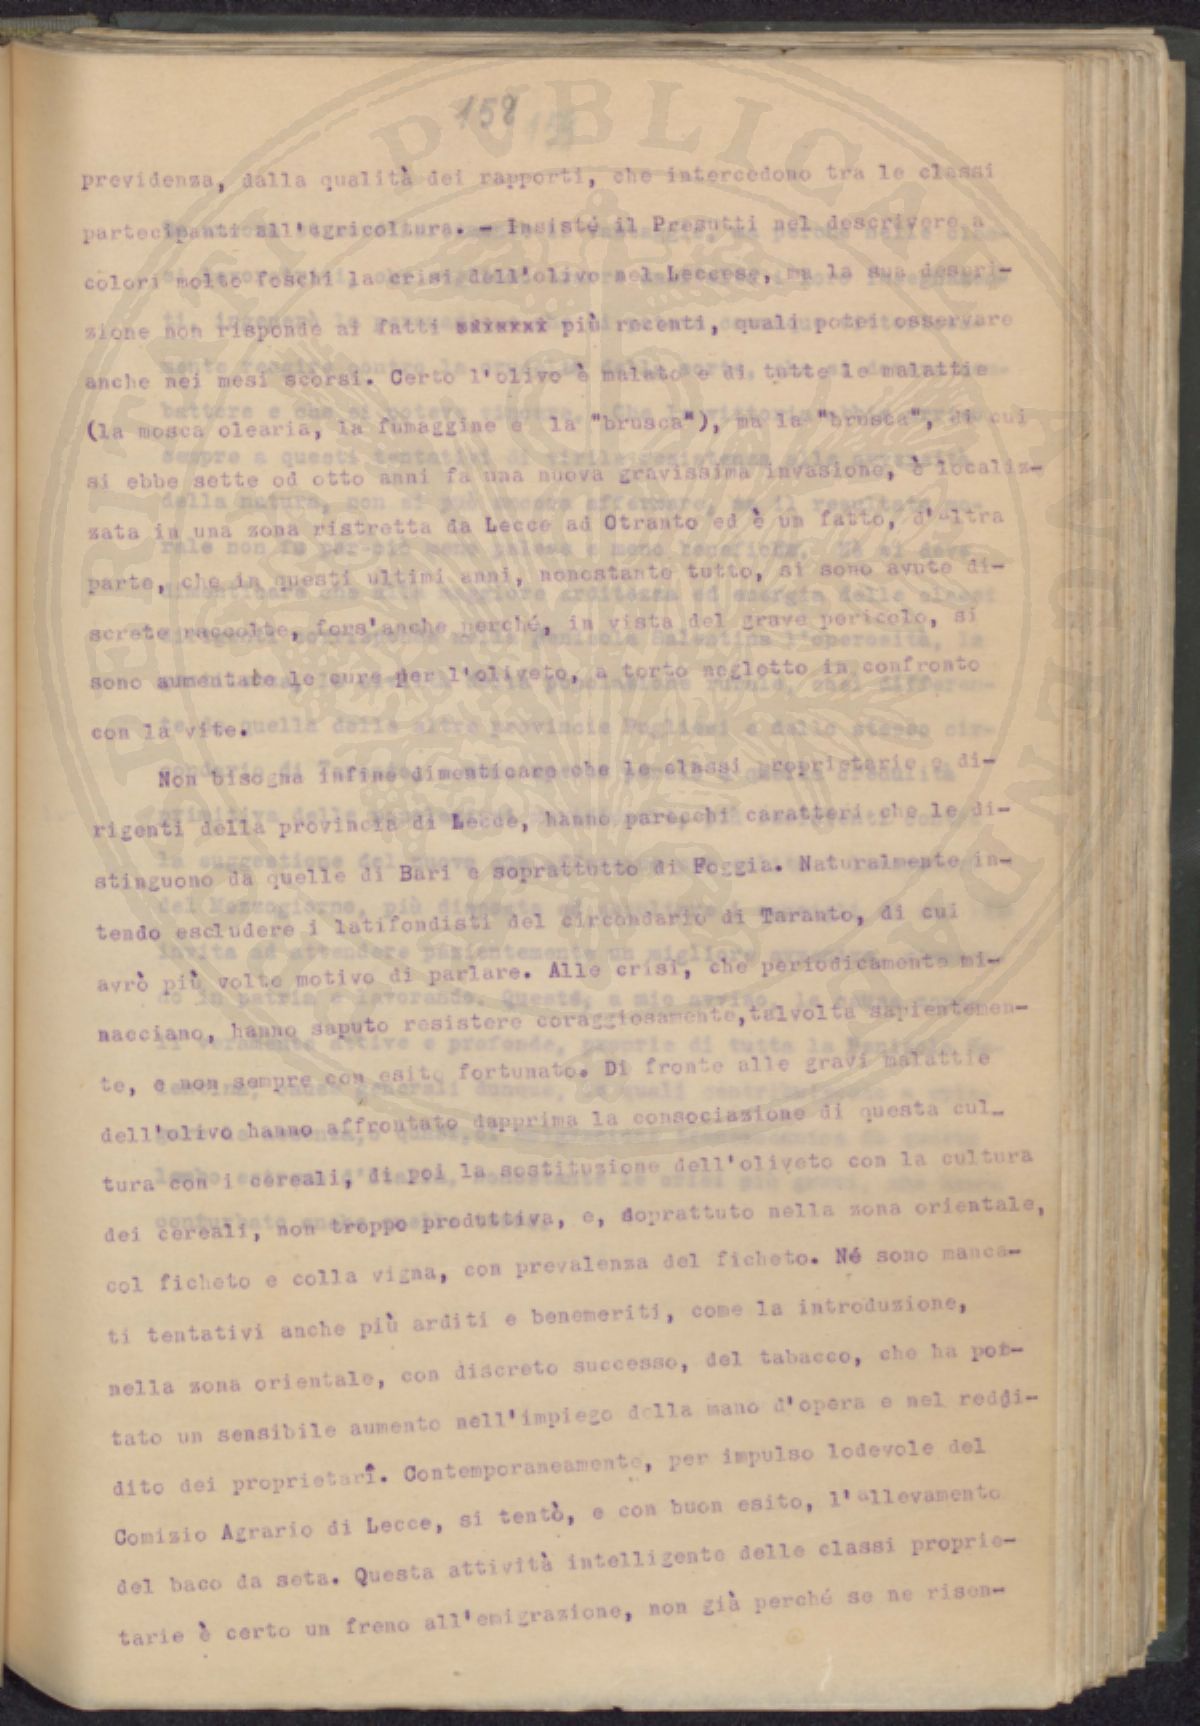 158
previdenza, dalla qualità dei rapporti, che intercedono tra le classi
partecipanti all'agricoltura. - Insisté il Presutti nel descrivere a
colori molto foschi la crisi dell'olivo nel Leccese, ma la sua descri-
zione non risponde ai fatti xxxxxxx più recenti, quali potei osservare
anche nei mesi scorsi. Certo l'olivo è malato e di tutte le malattie
(la mosca olearia, la fumaggine e la "brusca"), ma la "brusca", di cui
si ebbe sette od otto anni fa una nuova gravissima invasione, è localiz-
zata in una zona ristretta da Lecce ad Otranto ed è un fatto, d'altra
parte, che in questi ultimi anni, nonostante tutto, si sono avute di-
screte raccolte, fors'anche perché, in vista del grave pericolo, si
sono aumentate le cure per l'oliveto, a torto negletto in confronto
con la vite.
Non bisogna infine dimenticare che le classi proprietarie e di-
rigenti della provincia di Lecce, hanno parecchi caratteri che le di-
stinguono da quelle di Bari e soprattutto di Foggia. Naturalmente in-
tendo escludere i latifondisti del circondario di Taranto, di cui
avrò più volte motivo di parlare. Alle crisi, che periodicamente mi-
nacciano, hanno saputo resistere coraggiosamente,talvolta sapientemen-
te, e non sempre con esito fortunato. Di fronte alle gravi malattie
dell'olivo hanno affrontato dapprima la consociazione di questa cul-
tura con i cereali, di poi la sostituzione dell'oliveto con la cultura
dei cereali, non troppo produttiva, e, soprattuto nella zona orientale,
col ficheto e colla vigna, con prevalenza del ficheto. Né sono manca-
ti tentativi anche più arditi e benemeriti, come la introduzione,
nella zona orientale, con discreto successo, del tabacco, che ha por-
tato un sensibile aumento nell'impiego della mano d'opera e nel reddi-
dito dei proprietarî. Contemporaneamente, per impulso lodevole del
Comizio Agrario di Lecce, si tentò, e con buon esito, l'allevamento
del baco da seta. Questa attività intelligente delle classi proprie-
tarie è certo un freno all'emigrazione, non già perché se ne risen-